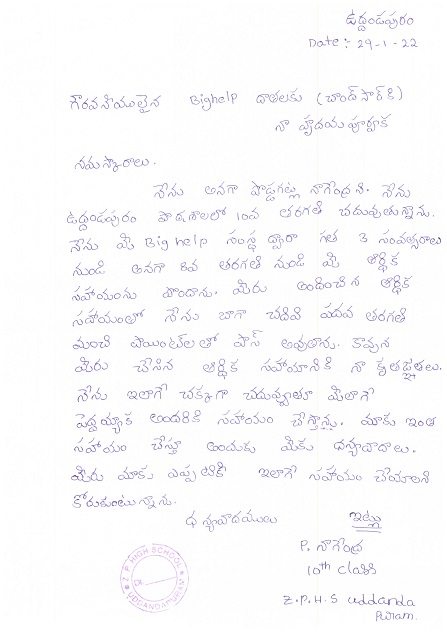 ఉద్దండపురం
Date :- 29-1-22
గౌరవనీయులైన Bighelp దాతలకు (చాంద్ సార్ కి)
నా హృదయ పూర్వక
నమస్కారాలు.
నేను అనగా పొడ్డగట్ల నాగేంద్రని. నేను
ఉద్దండపురం పాఠశాలలో 10వ తరగతి చదువుతున్నాను.
నేను మీ Big help సంస్థ ద్వారా గత 3 సంవత్సరాలు
నుండి అనగా 8వ తరగతి నుండి మీ ఆర్థిక
సహాయంను పొందాను. మీరు అందించిన ఆర్థిక
సహాయంతో నేను బాగా చదివి పదవ తరగతి
మంచి పాయింట్‌లతో పాస్ అవుతాను. కావున
మీరు చేసిన ఆర్థిక సహాయానికి నా కృతజ్ఞతలు.
నేను ఇలాగే చక్కగా చదువ్వుతూ మీలాగే
పెద్దయ్యాక అందరికి సహాయం చేస్తాను. మాకు ఇంత
సహాయం చేస్తూ అందుకు మీకు ధన్యవాదాలు.
మీరు మాకు ఎప్పటికీ ఇలాగే సహాయం చేయాలని
కోరుకుంటున్నాను.
ధన్యవాదములు ఇట్లు
P. నాగేంద్ర
10th class
Z.P.H.S uddanda
puram.
Z.P. HIGH SCHOOL
UDDANDAPURAM